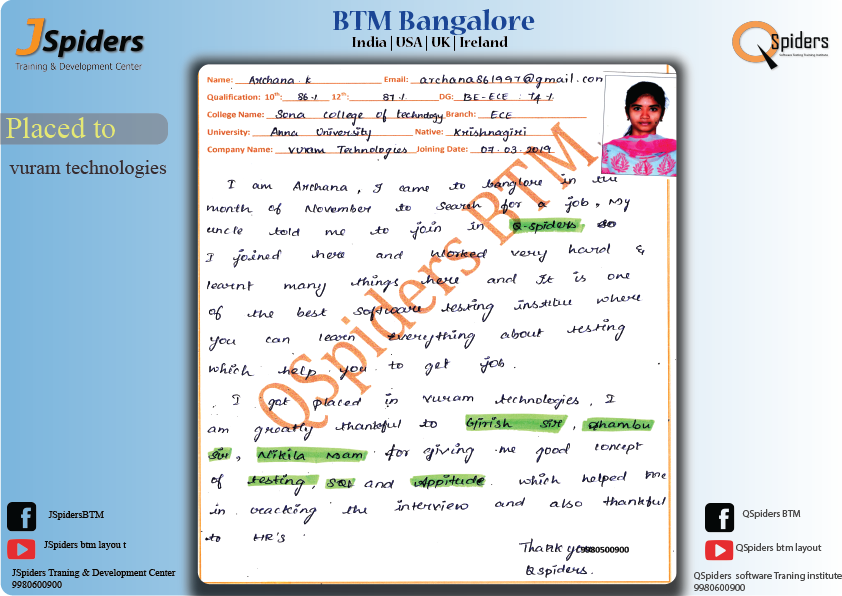 JSpiders
Training & Development Center
BTM Bangalore
India | USA | UK | Ireland
QSpiders
Software Testing Training Institute
Placed to
vuram technologies
Name: Archana . K Email: archana861997@gmail.com
Qualification: 10th: 86 % 12th: 87 % DG: BE-ECE : 74 %
College Name: Sona college of technology Branch: ECE
University: Anna University Native: Krishnagiri
Company Name: vuram Technologies Joining Date: 07.03.2019
I am Archana, I came to banglore in the
month of November to search for a job, My
uncle told me to join in Q-spiders so
I joined here and worked very hard &
learnt many things here and It is one
of the best software testing institue where
you can learn everything about testing
which help you to get job.
I got placed in vuram technologies, I
am greatly thankful to Girish sir, Shambu
sir, Nikila mam for giving me good concept
of testing, SQL and Appitude. which helped me
in cracking the interview and also thankful
to HR's
Thank you 9980500900
Qspiders.
QSpiders BTM
JSpidersBTM
JSpiders btm layou t
JSpiders Traning & Development Center
9980600900
QSpiders BTM
QSpiders btm layout
QSpiders software Traning institute
9980600900